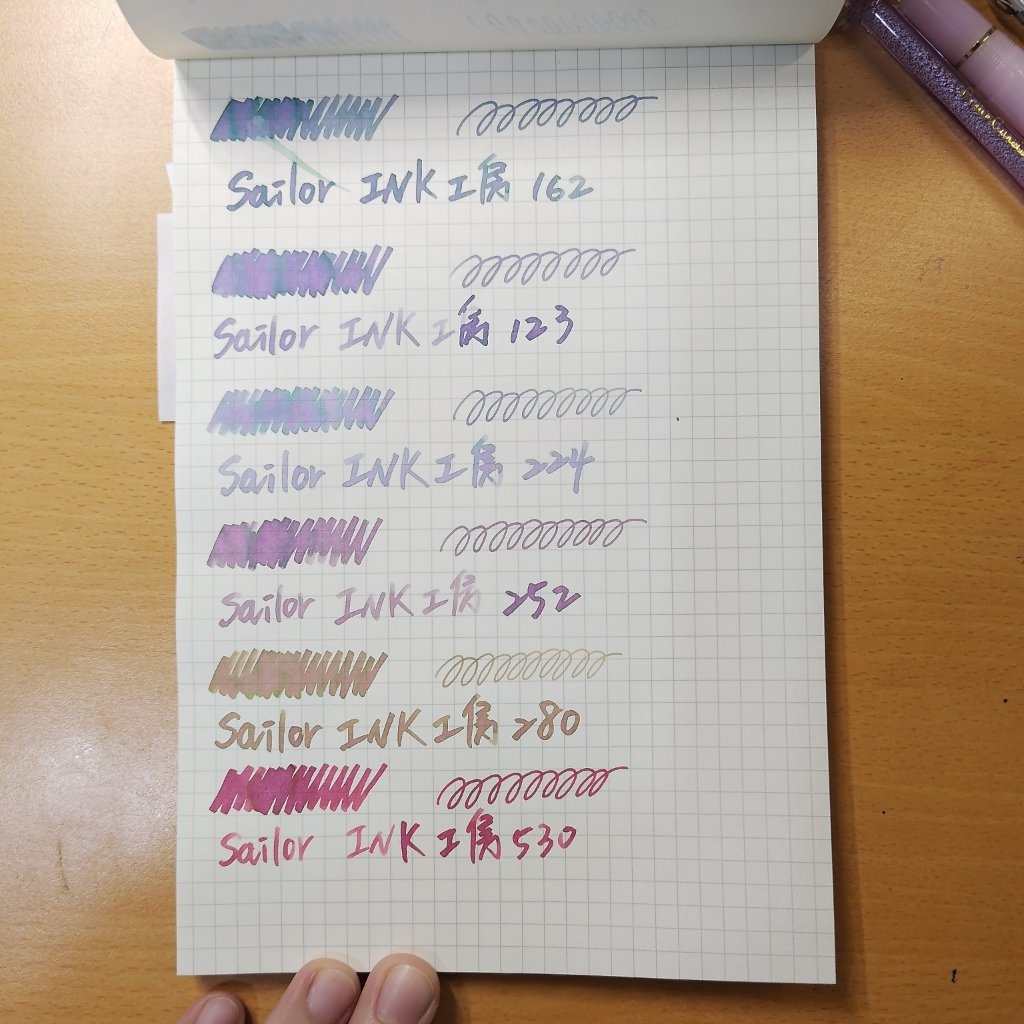 Sailor INK工房 162
Sailor INK工房 123
Sailor INK工房 224
Sailor INK工房 252
Sailor INK工房 280
Sailor INK工房 530